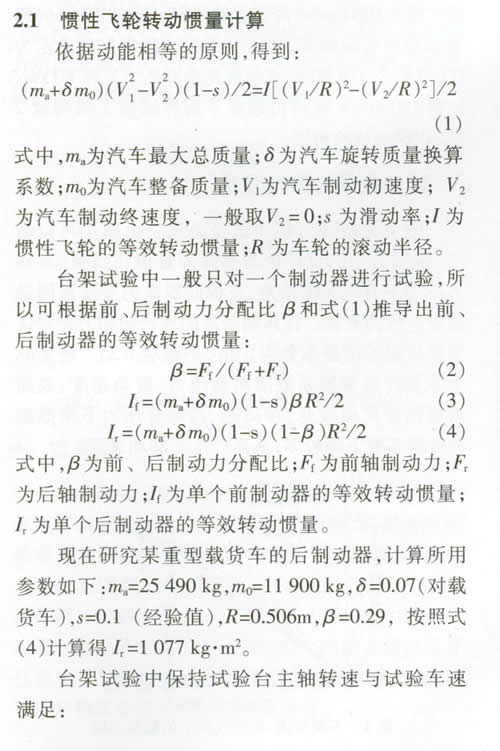 2.1 惯性飞轮转动惯量计算
依据动能相等的原则,得到:
(mₐ+δm₀)(V₁²-V₂²)(1-s)/2=I[(V₁/R)²-(V₂/R)²]/2
(1)
式中,mₐ为汽车最大总质量;δ为汽车旋转质量换算
系数;m₀为汽车整备质量;V₁为汽车制动初速度; V₂
为汽车制动终速度, 一般取V₂=0;s 为滑动率;I 为
惯性飞轮的等效转动惯量;R 为车轮的滚动半径。
台架试验中一般只对一个制动器进行试验,所
以可根据前、后制动力分配比 β和式(1)推导出前、
后制动器的等效转动惯量:
β=Ff/(Ff+Fr) (2)
If=(mₐ+δm₀)(1-s)βR²/2 (3)
Ir=(mₐ+δm₀)(1-s)(1-β)R²/2 (4)
式中,β为前、后制动力分配比;Ff为前轴制动力;Fr
为后轴制动力;If为单个前制动器的等效转动惯量;
Ir为单个后制动器的等效转动惯量。
现在研究某重型载货车的后制动器,计算所用
参数如下:mₐ=25 490 kg,m₀=11 900 kg,δ=0.07(对载
货车),s=0.1 (经验值),R=0.506m,β=0.29, 按照式
(4)计算得 Ir=1 077 kg·m²。
台架试验中保持试验台主轴转速与试验车速
满足: